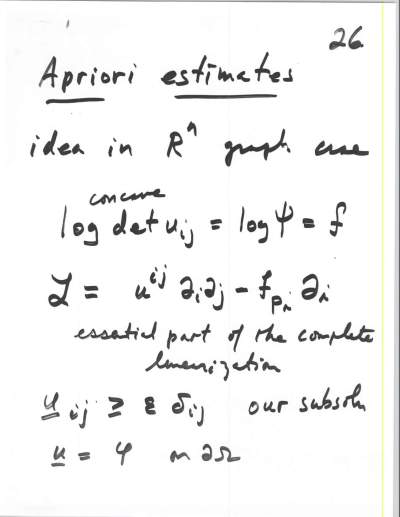 26
Apriori estimates
idea in Rⁿ graph case
concave
log det u_{ij} = log ψ = f
ℒ = u^{ij} ∂_i ∂_j - f_{p_i} ∂_i
essential part of the complete
linearization
u̲_{ij} ≥ ε δ_{ij} our subsoln
u̲ = φ on ∂Ω